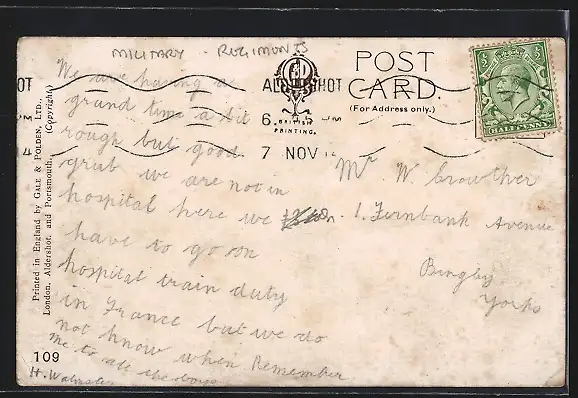 MILITARY - REGIMENTS
We are having a
grand time a bit
rough but good
grub we are not in
hospital here we
have to go on
hospital train duty
in France but we do
not know when Remember
me to all the boys
H. Walmsley
POST
CARD.
(For Address only.)
BRITISH
PRINTING.
ALDERSHOT
6.
7 NOV 14
HALFPENNY
Mr W. Crowther
1. Fernbank Avenue
Bingley
Yorks
Printed in England by GALE & POLDEN, LTD.,
London, Aldershot, and Portsmouth.
(Copyright.)
109